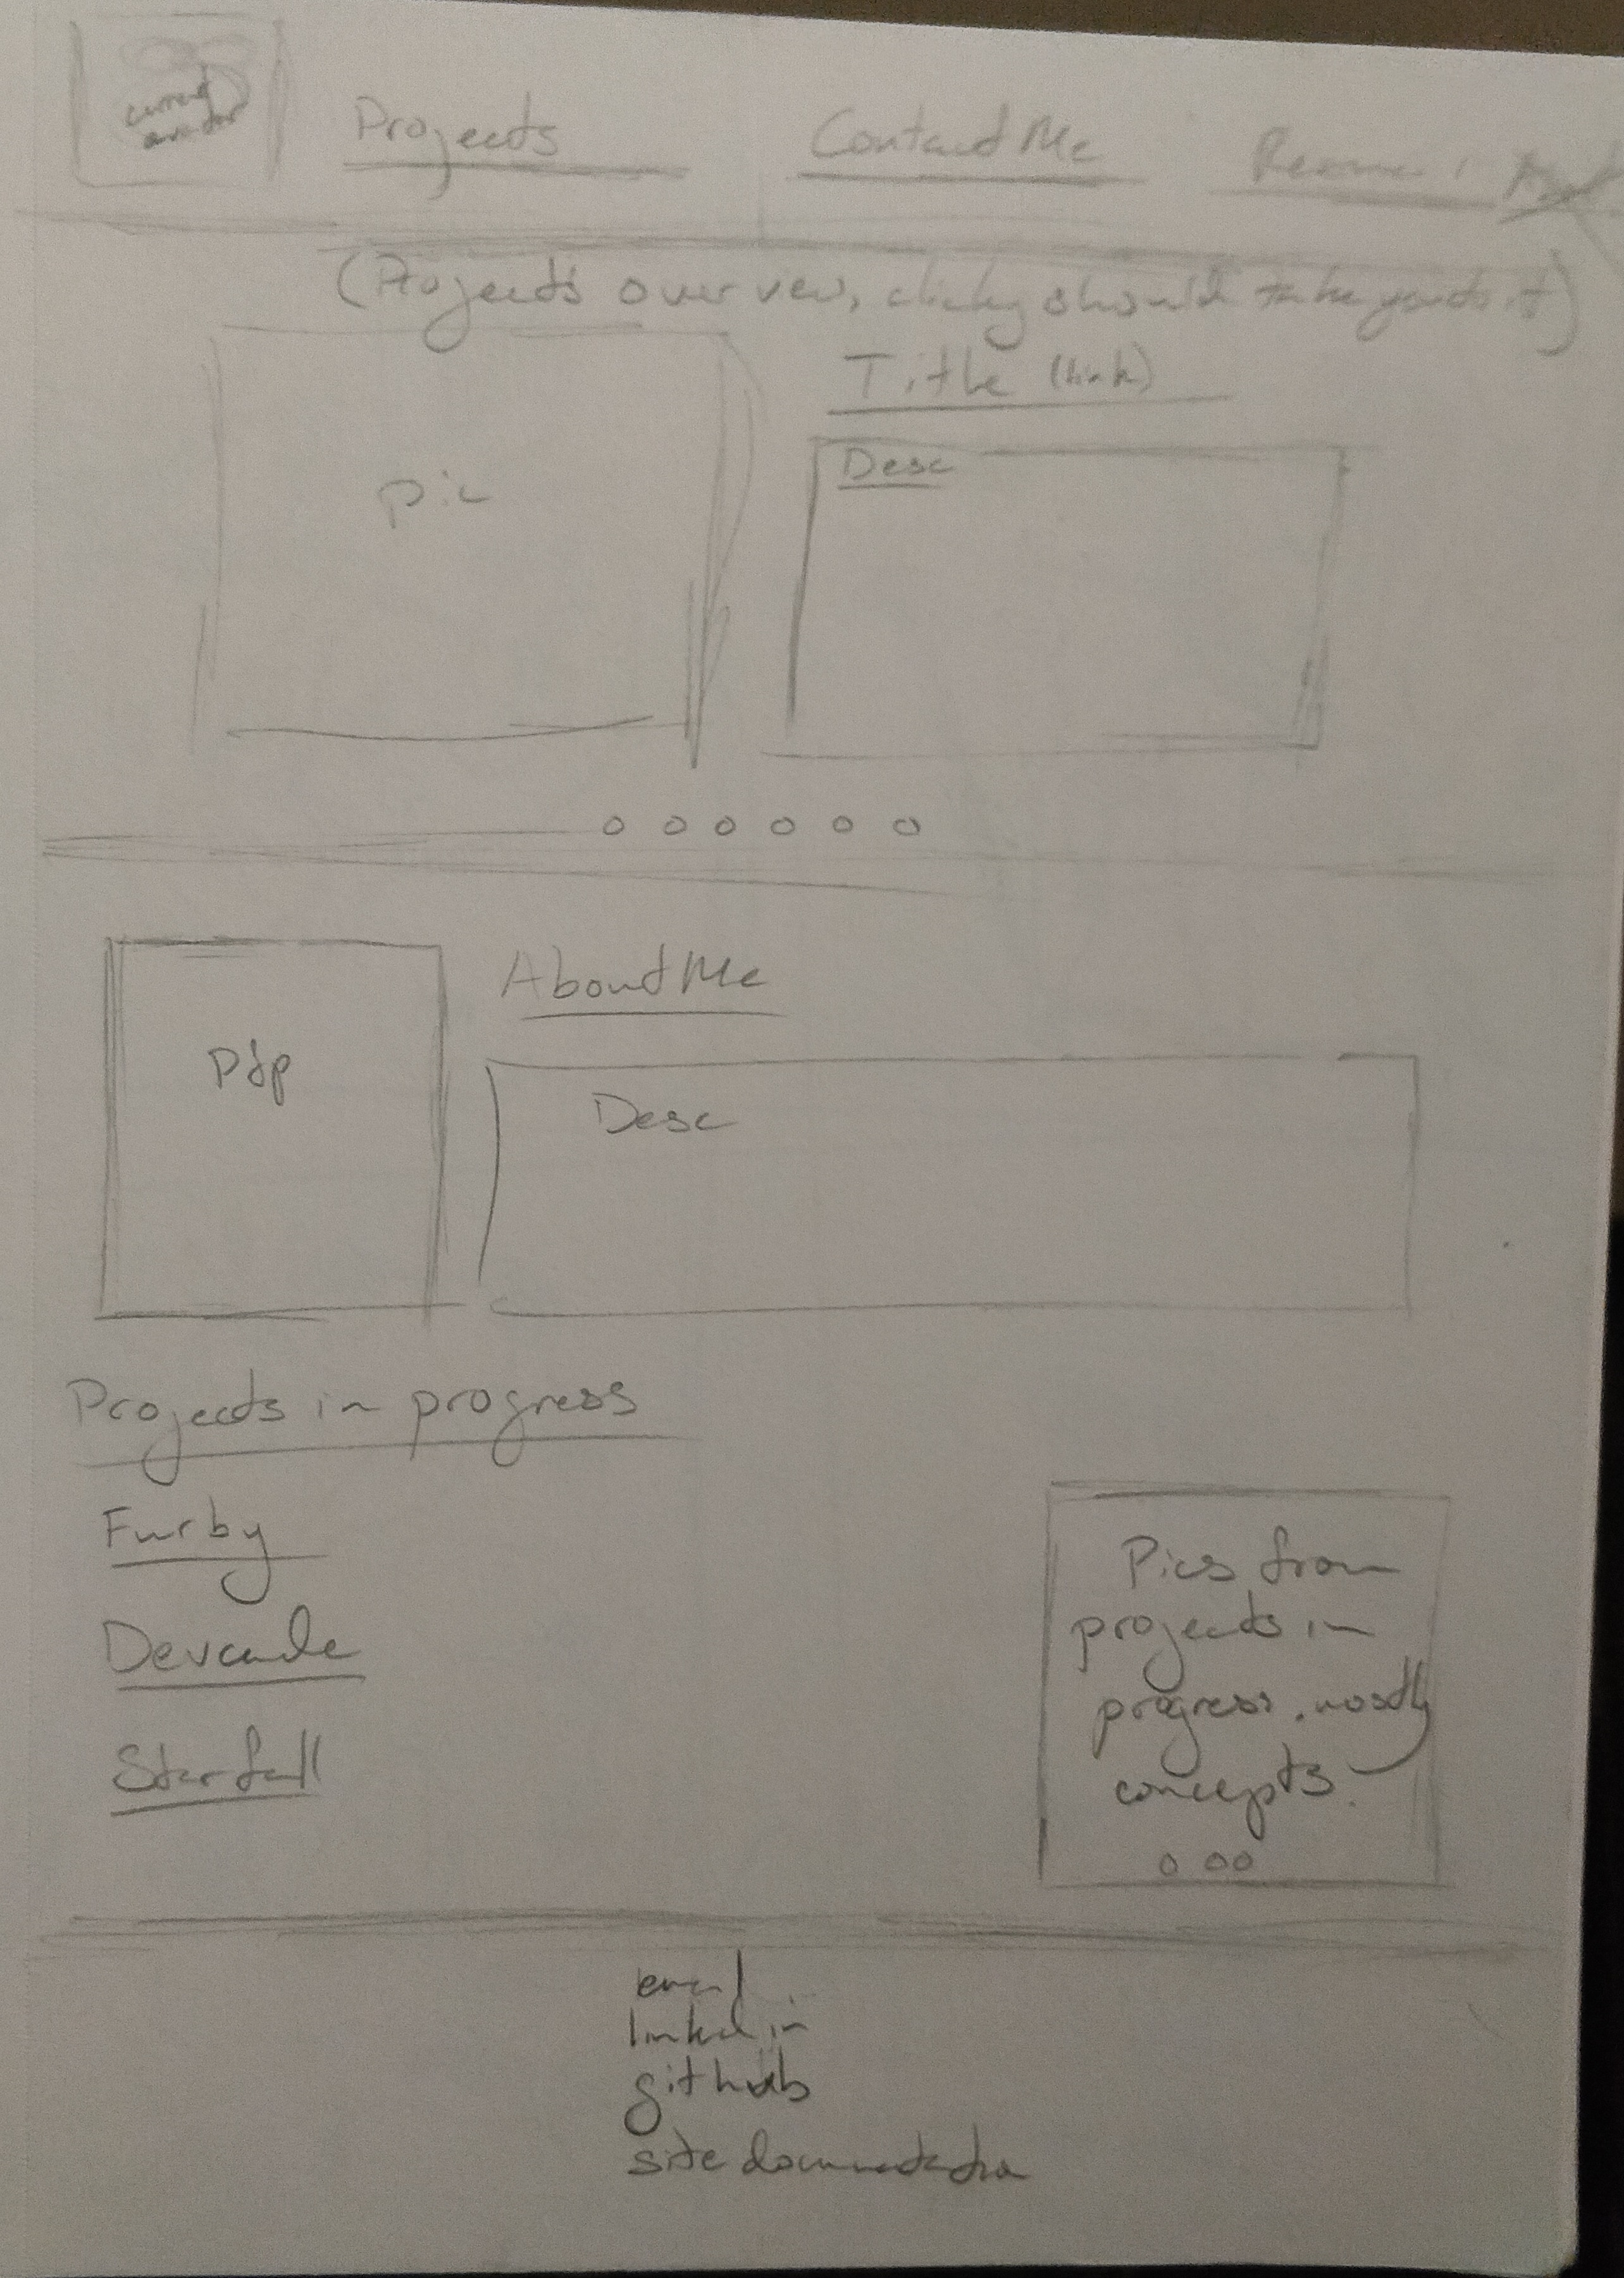 current
avatar
Projects
Contact Me
Resume
(Projects overview, clicky should take you to it)
Title (link)
Pic
Desc
About Me
Pfp
Desc
Projects in progress
Furby
Devcade
Starfall
Pics from
projects in
progress. mostly
concepts.
email
linked in
github
site documentation